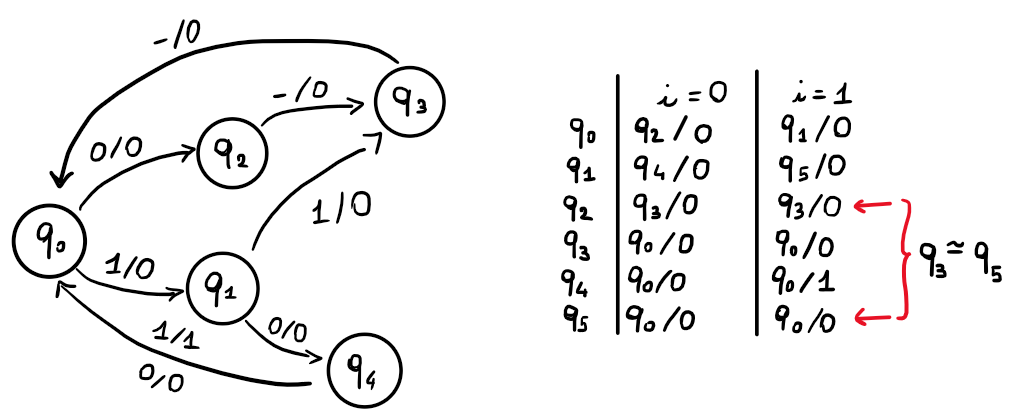 -/0
q3
-/0
q2
0/0
1/0
q0
1/0
q1
0/0
1/1
0/0
q4
i = 0 i = 1
q0 q2/0 q1/0
q1 q4/0 q5/0
q2 q3/0 q3/0
q3 q0/0 q0/0
q4 q0/0 q0/1
q5 q0/0 q0/0
q3 ≃ q5